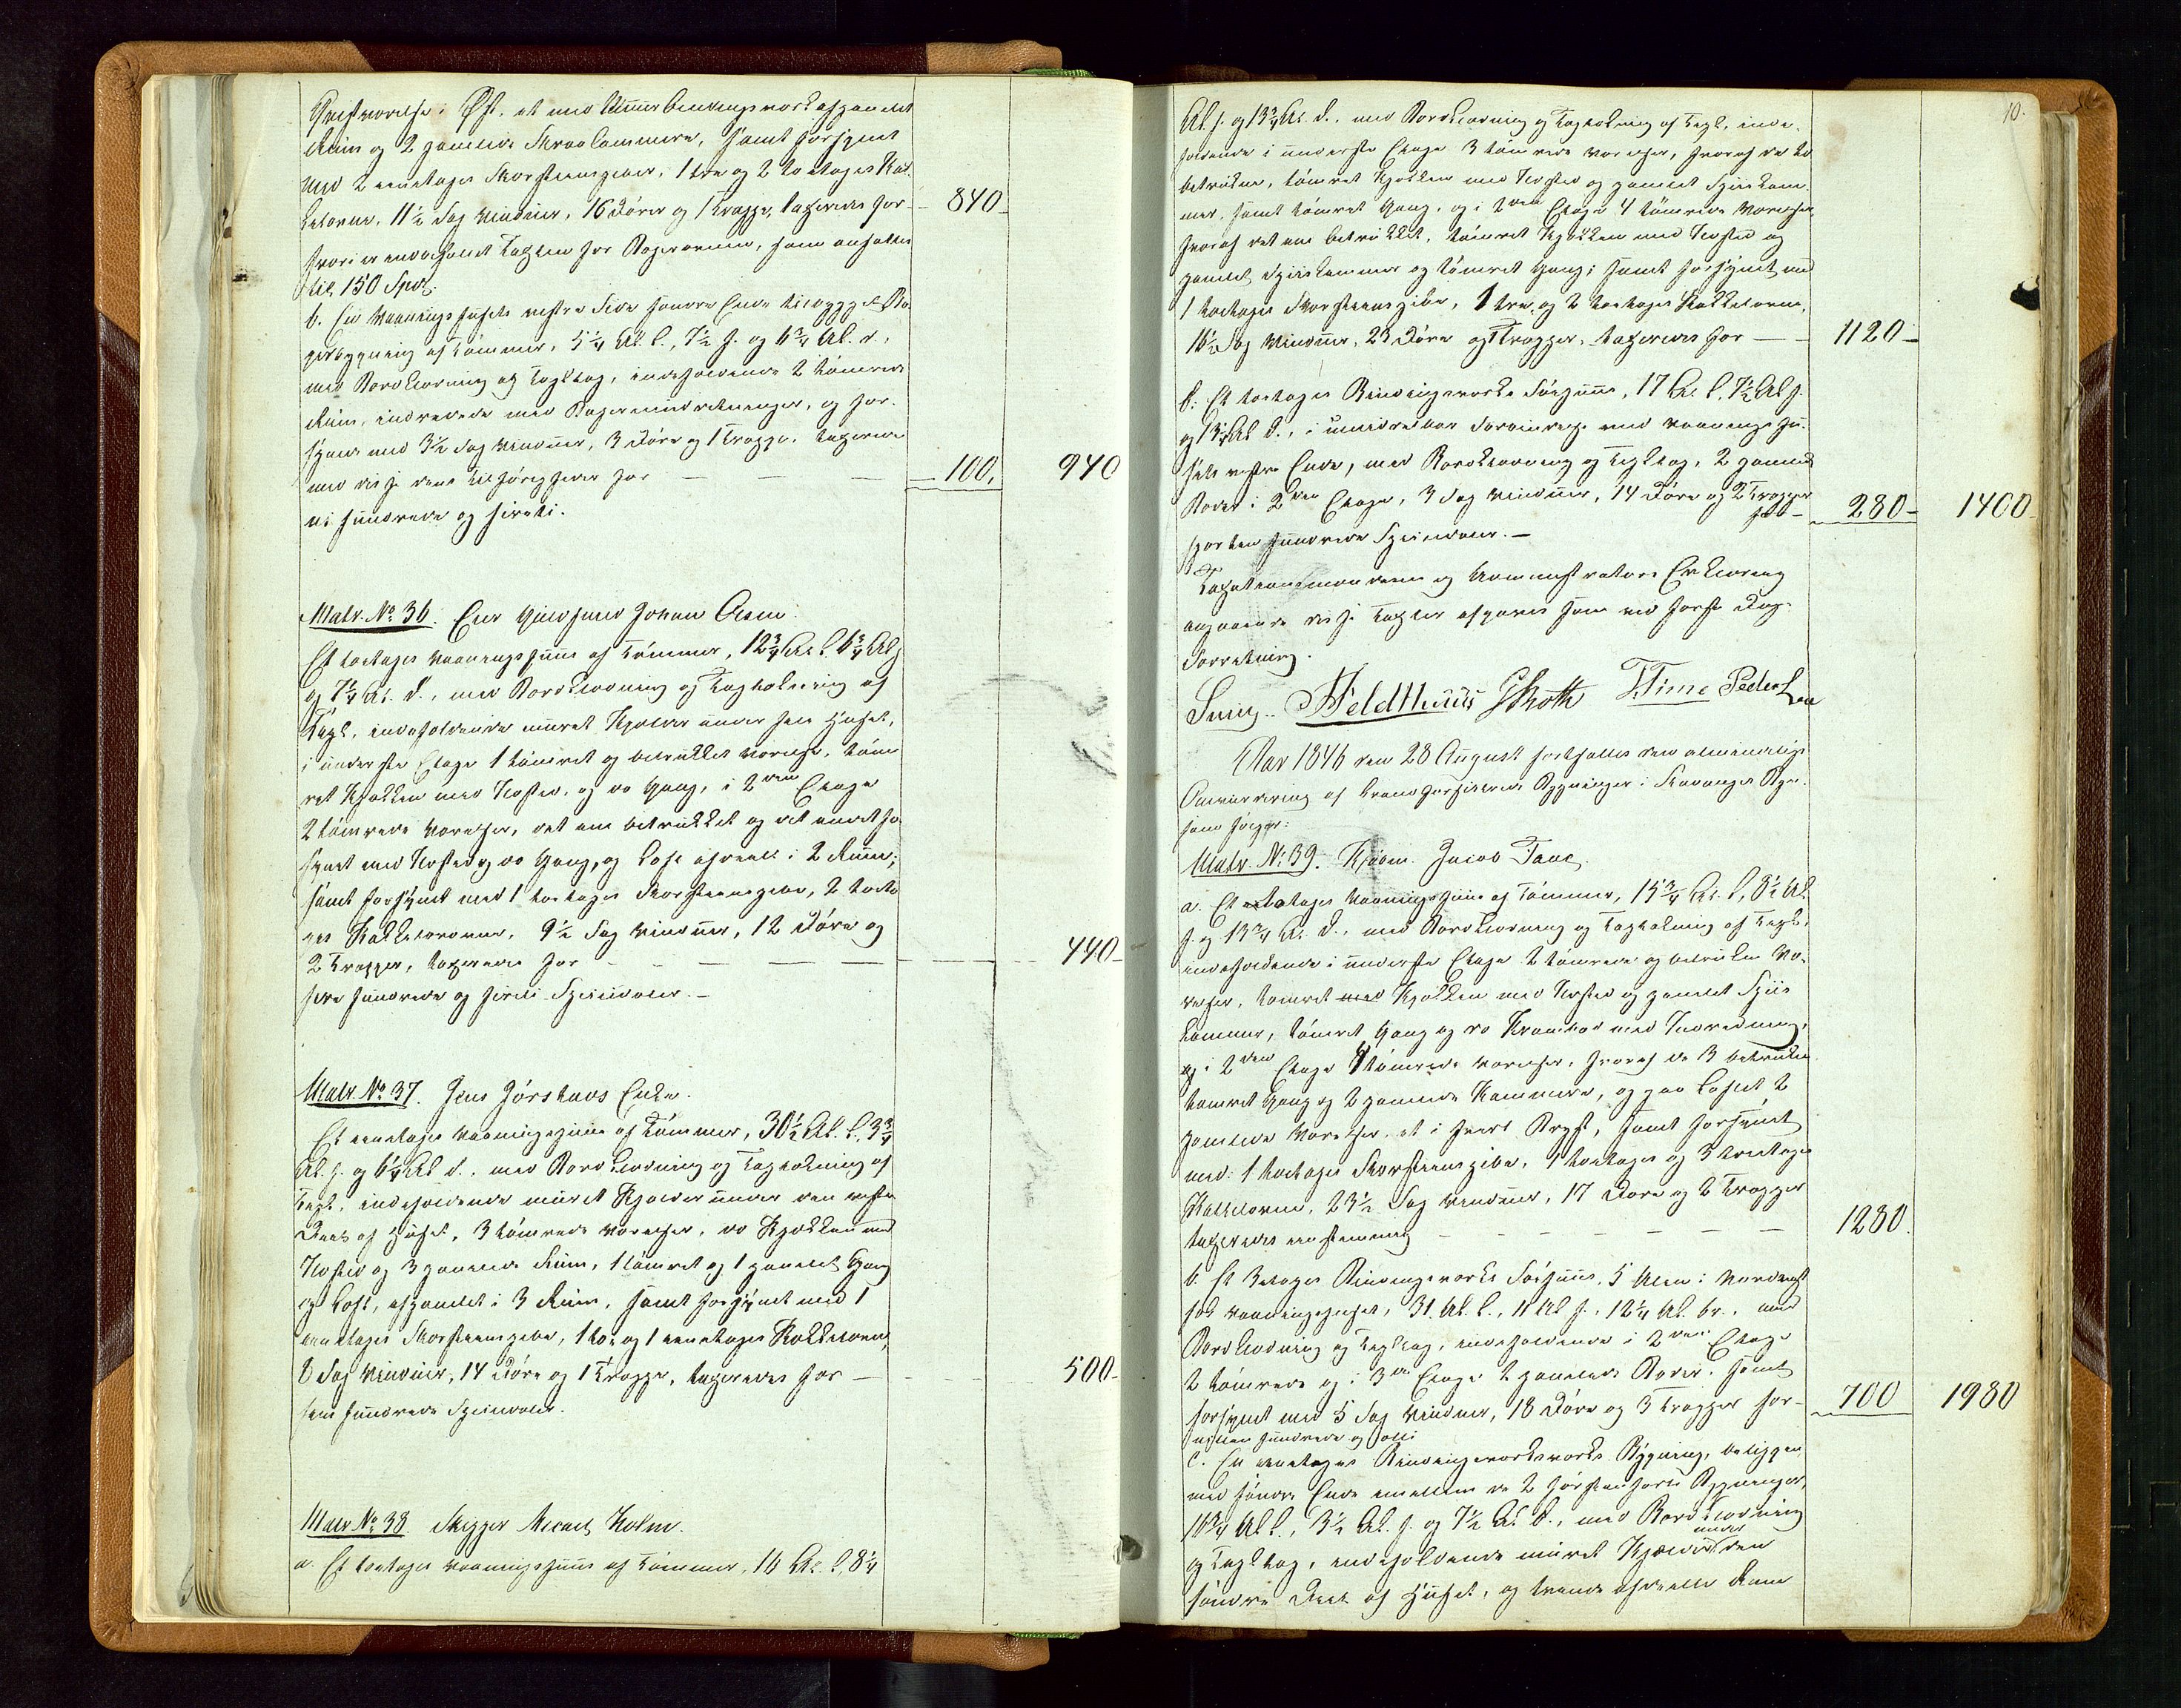 Qvistværelse i Øst, et med Muur bindingsværk afpanelet
Rum og 2 panelede Skraakammere, samt forsynet
med 2 eenetages Skorsteenspiber, 1 tre og 2 toetages Kak-
kelovne, 11½ Fag Vinduer, 16 Döre og 1 Trappe, taxeredes for 840
hvori er indbefattet Taxten for Bagerovnen, som ansattes
til 150 Spd.
b. En Vaaningshusets vestre Side søndre Ende tilbygget Ba-
gerbygning af Tömmer, 5¼ Al. l., 7½ h. og 6¾ Al. d.,
med Bordklædning og Tegltag, indeholdende 2 tömrede
Rum, indredede med Bagerindretninger, og for-
synet med 3½ Fag Vinduer, 3 Döre og 1 Trappe, taxeredes
med disse dens tilhørigheder for 100, 940
ni hundrede og fireti.
Matr. No 36. Eier Guldsmed Johan Olsen.
Et toetages Vaaningshuus af Tömmer, 12¾ Al. l. 6¾ Al. h.
og 7¼ Al. d., med Bordklædning og Tagtækning af
Tegl, indeholdende muret Kjælder under hele Huset,
i underste Etage 1 tömret og betrukket Værelse, töm-
ret Kjøkken med Ildsted, og do Gang, i 2den Etage
2 tömrede Værelser, det ene betrukket og det andet for-
synet med Ildsted og do Gang, og Loft afdeelt i 2 Rum,
samt forsynet med 1 toetages Skorsteenspibe, 2 toeta-
ges Kakkelovne, 9½ Fag Vinduer, 12 Döre og
2 Trapper, taxeredes for 440
fire hundrede og fireti Speciedaler.
Matr. No 37. Jens Hörstads Enke.
Et eenetages Vaaningshuus af Tömmer, 30½ Al. l., 3¾
Al. h. og 6¼ Al. d., med Bordklædning og Tagtækning af
Tegl, indeholdende muret Kjælder under den vestre
Deel af Huset, 3 tömrede Værelser, do Kjøkken med
Ildsted og 3 panelede Rum, 1 tömret og 1 panelet Gang
og Loft, afpanelet i 3 Rum, samt forsynet med 1
eenetages Skorsteenspibe, 1 toe og 1 eenetages Kakkelovn,
8 Fag Vinduer, 14 Döre og 1 Trappe, taxeredes for 500
fem hundrede Speciedaler.
Matr. No 38. Skipper Michael Holm.
a. Et toetages Vaaningshuus af Tömmer, 16 Al. l. 8¼
10.
Al. h. og 13¾ Al. d., med Bordklædning og Tagtækning af Tegl, inde-
holdende i underste Etage 3 tömrede Værelser, hvoraf de to
betrukne, tömret Kjøkken med Ildsted og panelet Spiiskam-
mer, samt tömret Gang, og i 2den Etage 4 tömrede Værelser,
hvoraf det ene betrukket, tömret Kjøkken med Ildsted og
panelet Spiiskammer og tömret Gang; samt forsynet med
1 toetages Skorsteenspibe, 1 tre og 2 toetages Kakkelovne,
16½ Fag Vinduer, 23 Döre og Trapper, taxeredes for 1120
b. Et toetages Bindingsværks Söehuus, 17 Al. l., 7½ Al. h.
og 13¼ Al. d., i umiddelbar Forbindelse med Vaaningshu-
sets vestre Ende, med Bordklædning og Tegltag, 2 panelede
Boder i 2den Etage, 3 Fag Vinduer, 14 Döre og 2 Trapper
for 280 1400
fjorten hundrede Speciedaler.
Taxationsmændenes og Administrators Erklæring
angaaende disse Taxter afgaves som ved forste Dags
Forretning.
Sunig. Feldthuus JRoth T Time Pedersen
Aar 1846 den 28 August fortsattes den almindelige
Omvurdering af brandforsikrede Bygninger i Stavanger Bye
som følger:
Matr. No 39. Kjøbm. Jacob Tane.
a. Et toetages Vaaningshuus af Tömmer, 15¾ Al. l., 8½ Al.
h. og 13¾ Al. d., med Bordklædning og Tagtækning af Tegl,
indeholdende i underste Etage 2 tömrede og betrukne Væ-
relser, tömret Kjøkken med Ildsted og panelet Spiis-
kammer, tömret Gang og do Krambod med Indredning,
og i 2den Etage 4 tömrede Værelser, hvoraf de 3 betrukne
tömret Gang og 2 panelede Kammere, og paa Loftet 2
panelede Værelser, et i hvert Bryst, samt forsynet
med 1 toetages Skorsteenspibe, 1 toetages og 3 treetages
Kakkelovne, 23½ Fag Vinduer, 17 Döre og 2 Trapper
taxeredes eenstemmig 1280.
b. Et 3 etages Bindingsværks Söehuus, 5 Alen i Nordvest
for Vaaningshuset, 31 Al. l., 11 Al. h., 12¼ Al. br., med
Bordklædning og Tegltag, indeholdende i 2den Etage
2 tömrede og i 3die Etage 2 panelede Boder, samt
forsynet med 5 Fag Vinduer, 18 Döre og 3 Trapper for 700 1980
nitten hundrede og otti
c. En eenetages Bindingsværks Bygning, beliggen
med söndre Ende imellem de 2 førstanførte Bygninger,
16¾ Al. l., 3½ Al. h. og 7½ Al. d., med Bordklædning
og Tegltag, indeholdende muret Kjælder under den
söndre Deel af Huset, og trende afdeelte Rum